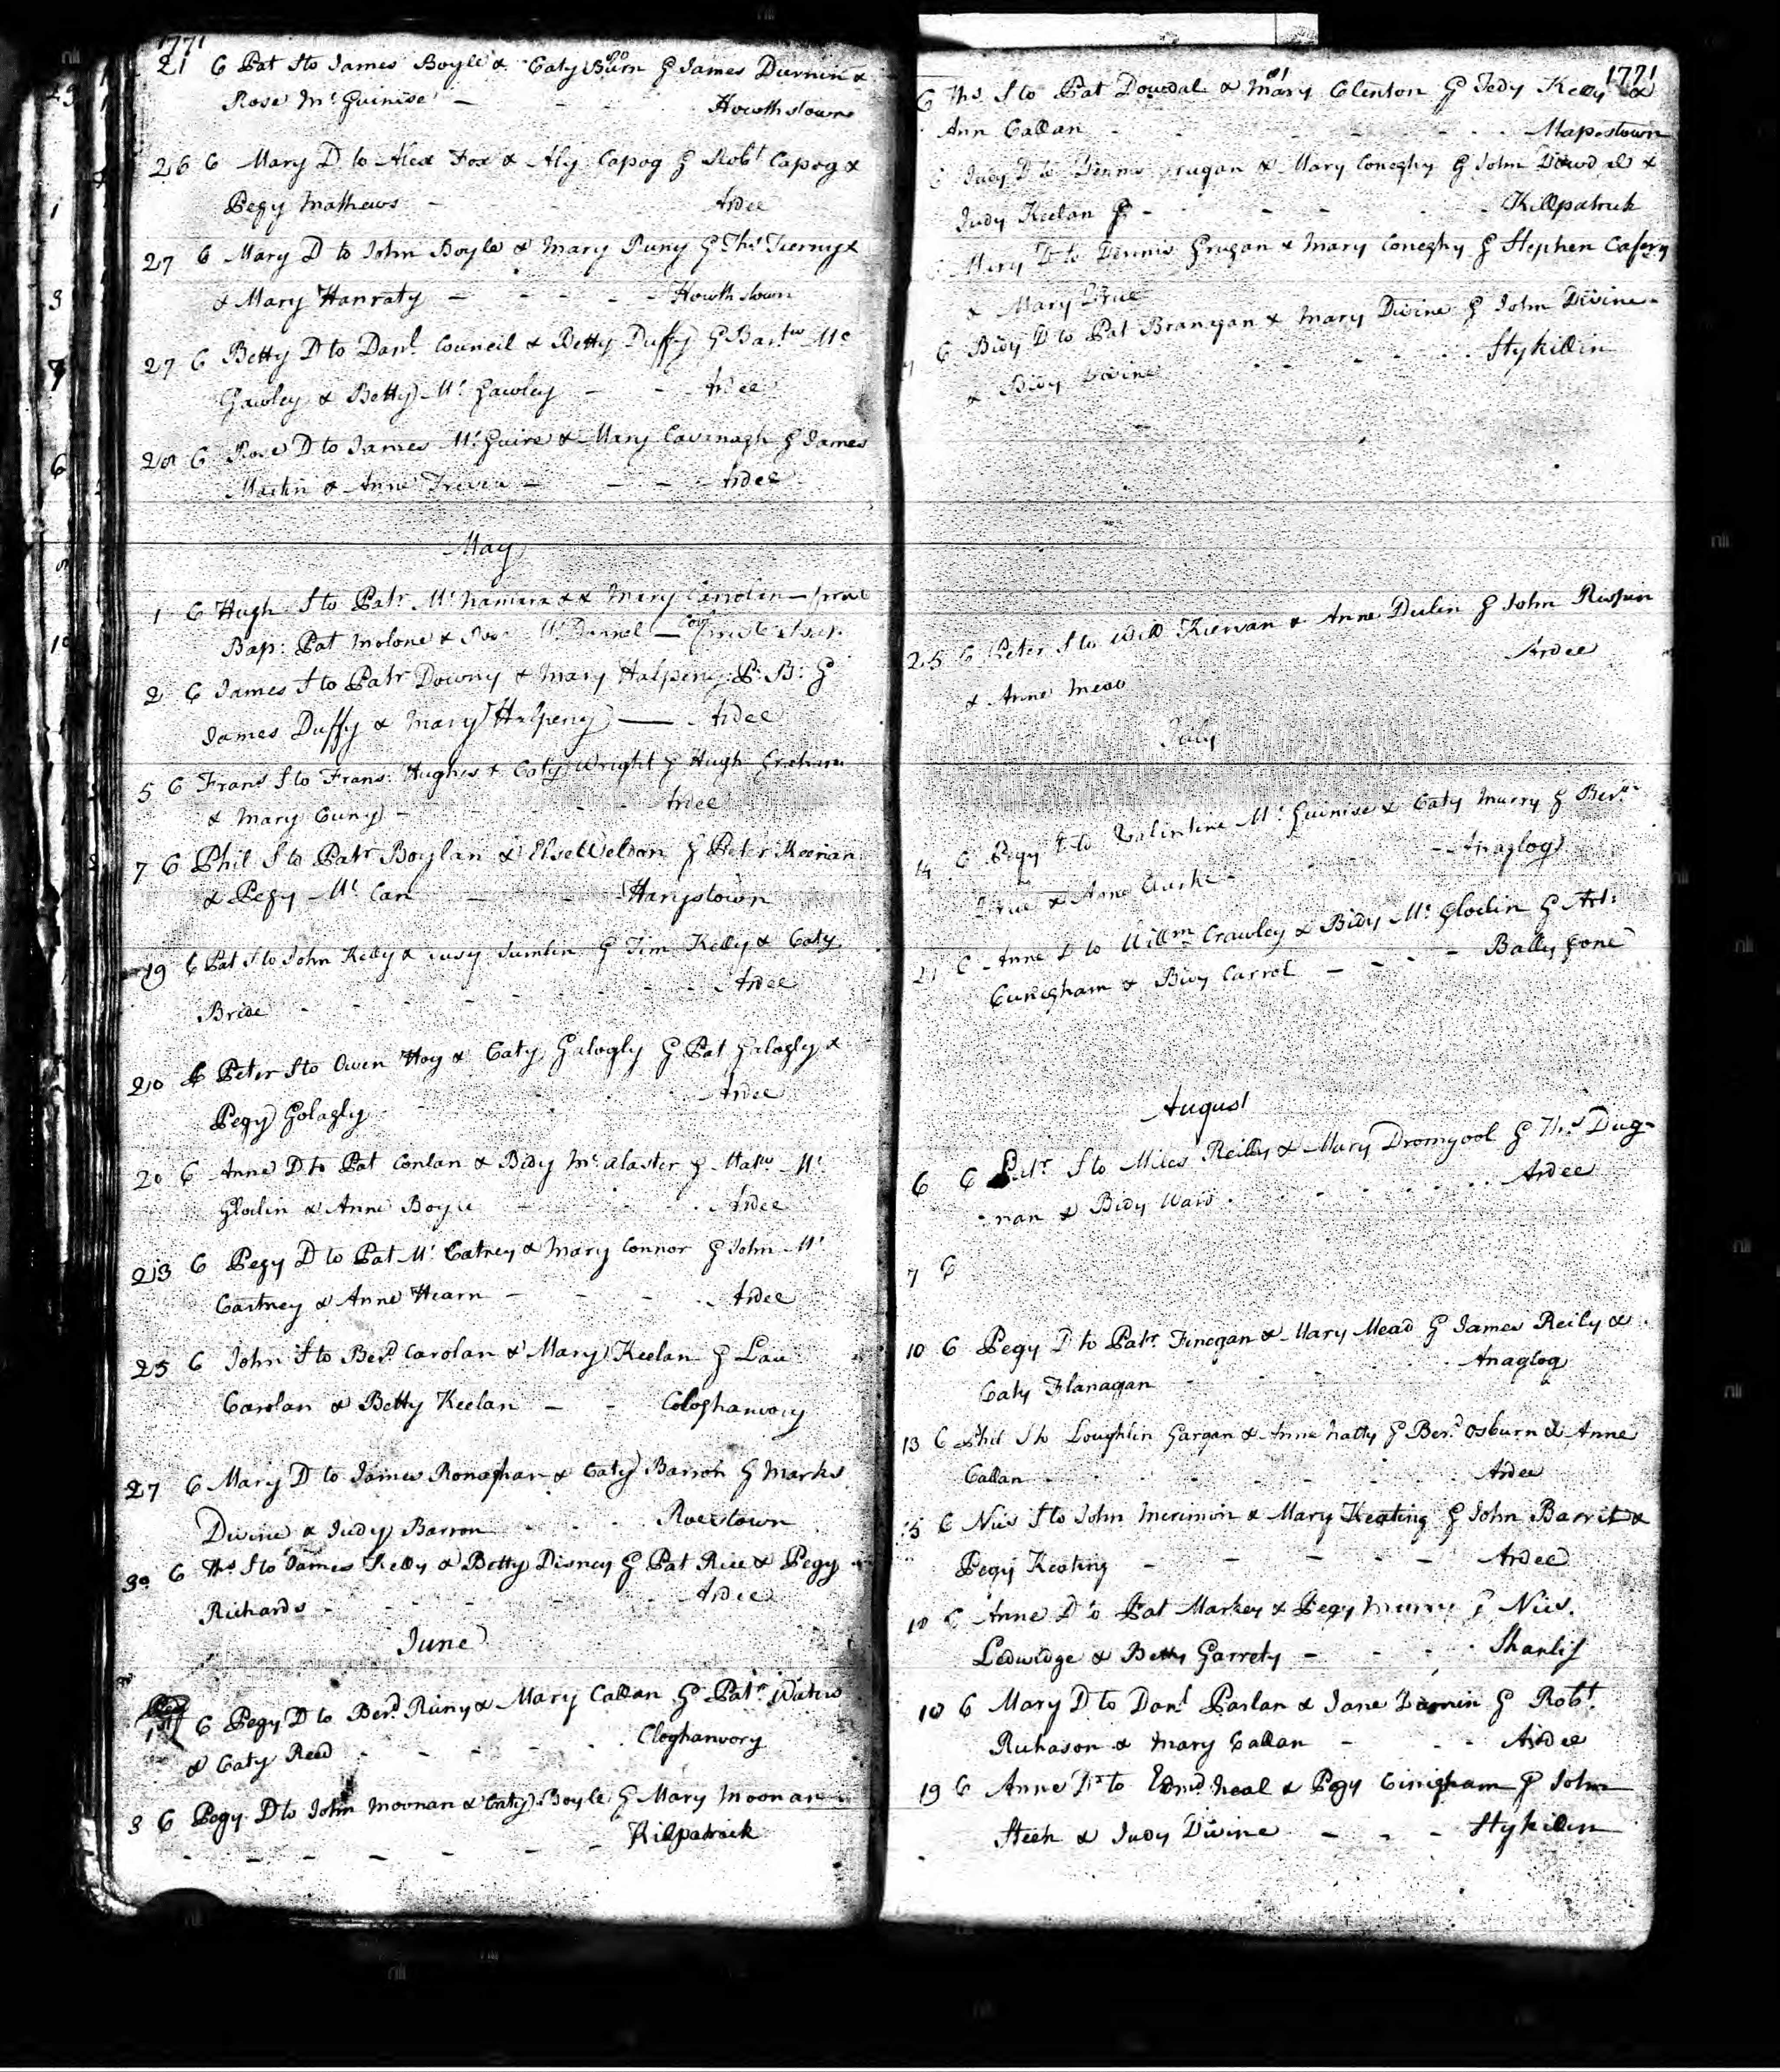 1771
21 C Pat S to James Boyle & Caty Burn G James Durnin &
Rose Mc Guinise - Howthstown
26 C Mary D to Alex Fox & Aly Capog G Robt Capog &
Pegy Mathews - Ardee
27 C Mary D to John Boyle & Mary Runy G Ths Tierny &
& Mary Hanraty - - - - Howthstown
27 C Betty D to Danl Council & Betty Duffy G Bartw Mc
Gawley & Betty Mc Gawley - - Ardee
28 C Rose D to James Mc Guire & Mary Cavanagh G James
Martin & Anne - - - Ardee
May
1 C Hugh S to Patr Mc Namara & & Mary Carolin
Bap: Pat Molone &
2 C James S to Patr Downy & Mary Halpeny P: B: G
James Duffy & Mary Halpeny — Ardee
5 C Frans S to Frans: Hughes & Caty Wright G Hugh Graham
& Mary Cuny - Ardee
7 C Phil S to Patr Boylan & Else Weldon G Peter Keenan
& Pegy Mc Can - - Harystown
19 C Pat S to John Kelly & Judy Sumlin G Tim Kelly & Caty
Bride - - - - - - Ardee
20 C Peter S to Owen Hoy & Caty Galogly G Pat Galogly &
Pegy Golagly Ardee
20 C Anne D to Pat Conlan & Bidy Mc Alaster G Matw Mc
Glodin & Anne Boyle Ardee
23 C Pegy D to Pat Mc Catney & Mary Connor G John Mc
Cartney & Anne Hearn - - - Ardee
25 C John S to Berd Carolan & Mary Keelan G Lau
Carolan & Betty Keelan - - Cologhanvory
27 C Mary D to James Ronaghan & Caty Barron G Marks
Divine & Judy Barron Roestown
30 C Ths S to James Kelly & Betty Disney G Pat Rice & Pegy
Richards - - - - - Ardee
June
1st C Pegy D to Berd Runy & Mary Callan G Patr Waters
& Caty Read - - - - Cloghanvory
3 C Pegy D to John Moonan & Caty Boyle G Mary Moonan
- - - - - - - Kilpatrick
1771
C Ths S to Pat Dowdal & Mary Clinton G Tedy Kelly &
Ann Callan - - - - Mapestown
C Judy D to Dennis Grugan & Mary Coneghy G John Dowdal &
Judy Keelan G - - - - Killpatrick
C Mary D to Dennis Grugan & Mary Coneghy G Stephen Cafery
& Mary True
C Bidy D to Pat Branigan & Mary Divine G John Divine
& Bidy Divine - - - - Stykillin
25 C Peter S to Will Kierwan & Anne Dulin G John Rispin
& Anne Mead Ardee
July
14 C Pegy D to Valintine Mc Guinise & Caty Murry G Berd
True & Anne Clarke - - Anaglog
21 C Anne D to Willm Crawley & Bidy Mc Glodin G Art:
Cunigham & Bidy Carrol - - - - Bally gone
August
6 C Patr S to Miles Reilly & Mary Dromgool G Ths Dug-
nan & Bidy Ward - - - - Ardee
7 C
10 C Pegy D to Patr Finegan & Mary Mead G James Reily &
Caty Flanagan - - - Anaglog
13 C Phil S to Loughlin Gargan & Anne Natty G Berd Osburn & Anne
Callan - - - - - Ardee
15 C Nics S to John Merimon & Mary Keating G John Barrit &
Pegy Keating - - - - - Ardee
18 C Anne D to Pat Markey & Pegy Murry G Nics.
Ledwidge & Betty Garrety - - - Shanlis
18 C Mary D to Danl Parlan & Jane G Robt
Richason & Mary Callan - - - Ardee
19 C Anne Dr to Edmd Neal & Pegy Cunigham G John
Steen & Judy Divine - - - Stykillin